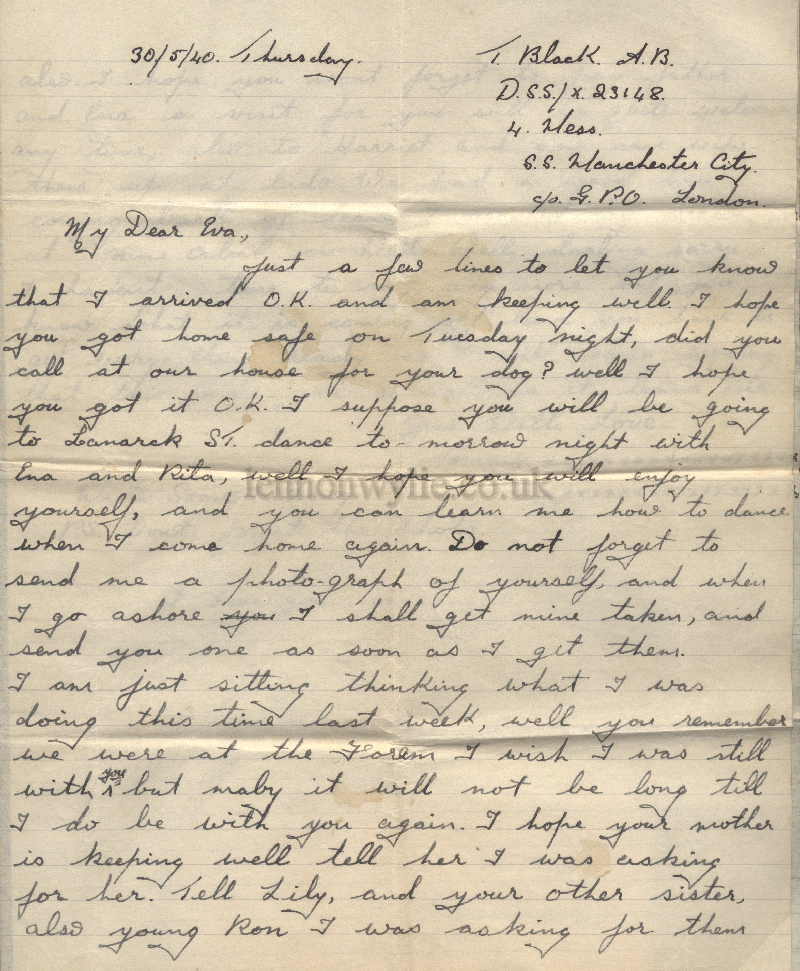 30/5/40. Thursday.
T. Black. A.B.
D.S.S/X.23148.
4. Mess.
S.S. Manchester City.
c/o. G.P.O. London.
My Dear Eva.,
Just a few lines to let you know
that I arrived O.K. and am keeping well. I hope
you got home safe on Tuesday night, did you
call at our house for your dog? well I hope
you got it O.K. I suppose you will be going
to Lanarck ST. dance to-morrow night with
Ena and Rita, well I hope you will enjoy
lennonwylie.co.uk
yourself, and you can learn me how to dance
when I come home again. Do not forget to
send me a photo-graph of yourself, and when
I go ashore you I shall get mine taken, and
send you one as soon as I get them.
I am just sitting thinking what I was
doing this time last week, well you remember
we were at the Forem I wish I was still
with you but maby it will not be long till
I do be with you again. I hope your mother
is keeping well tell her I was asking
for her. Tell Lily, and your other sister,
also young Ron I was asking for them